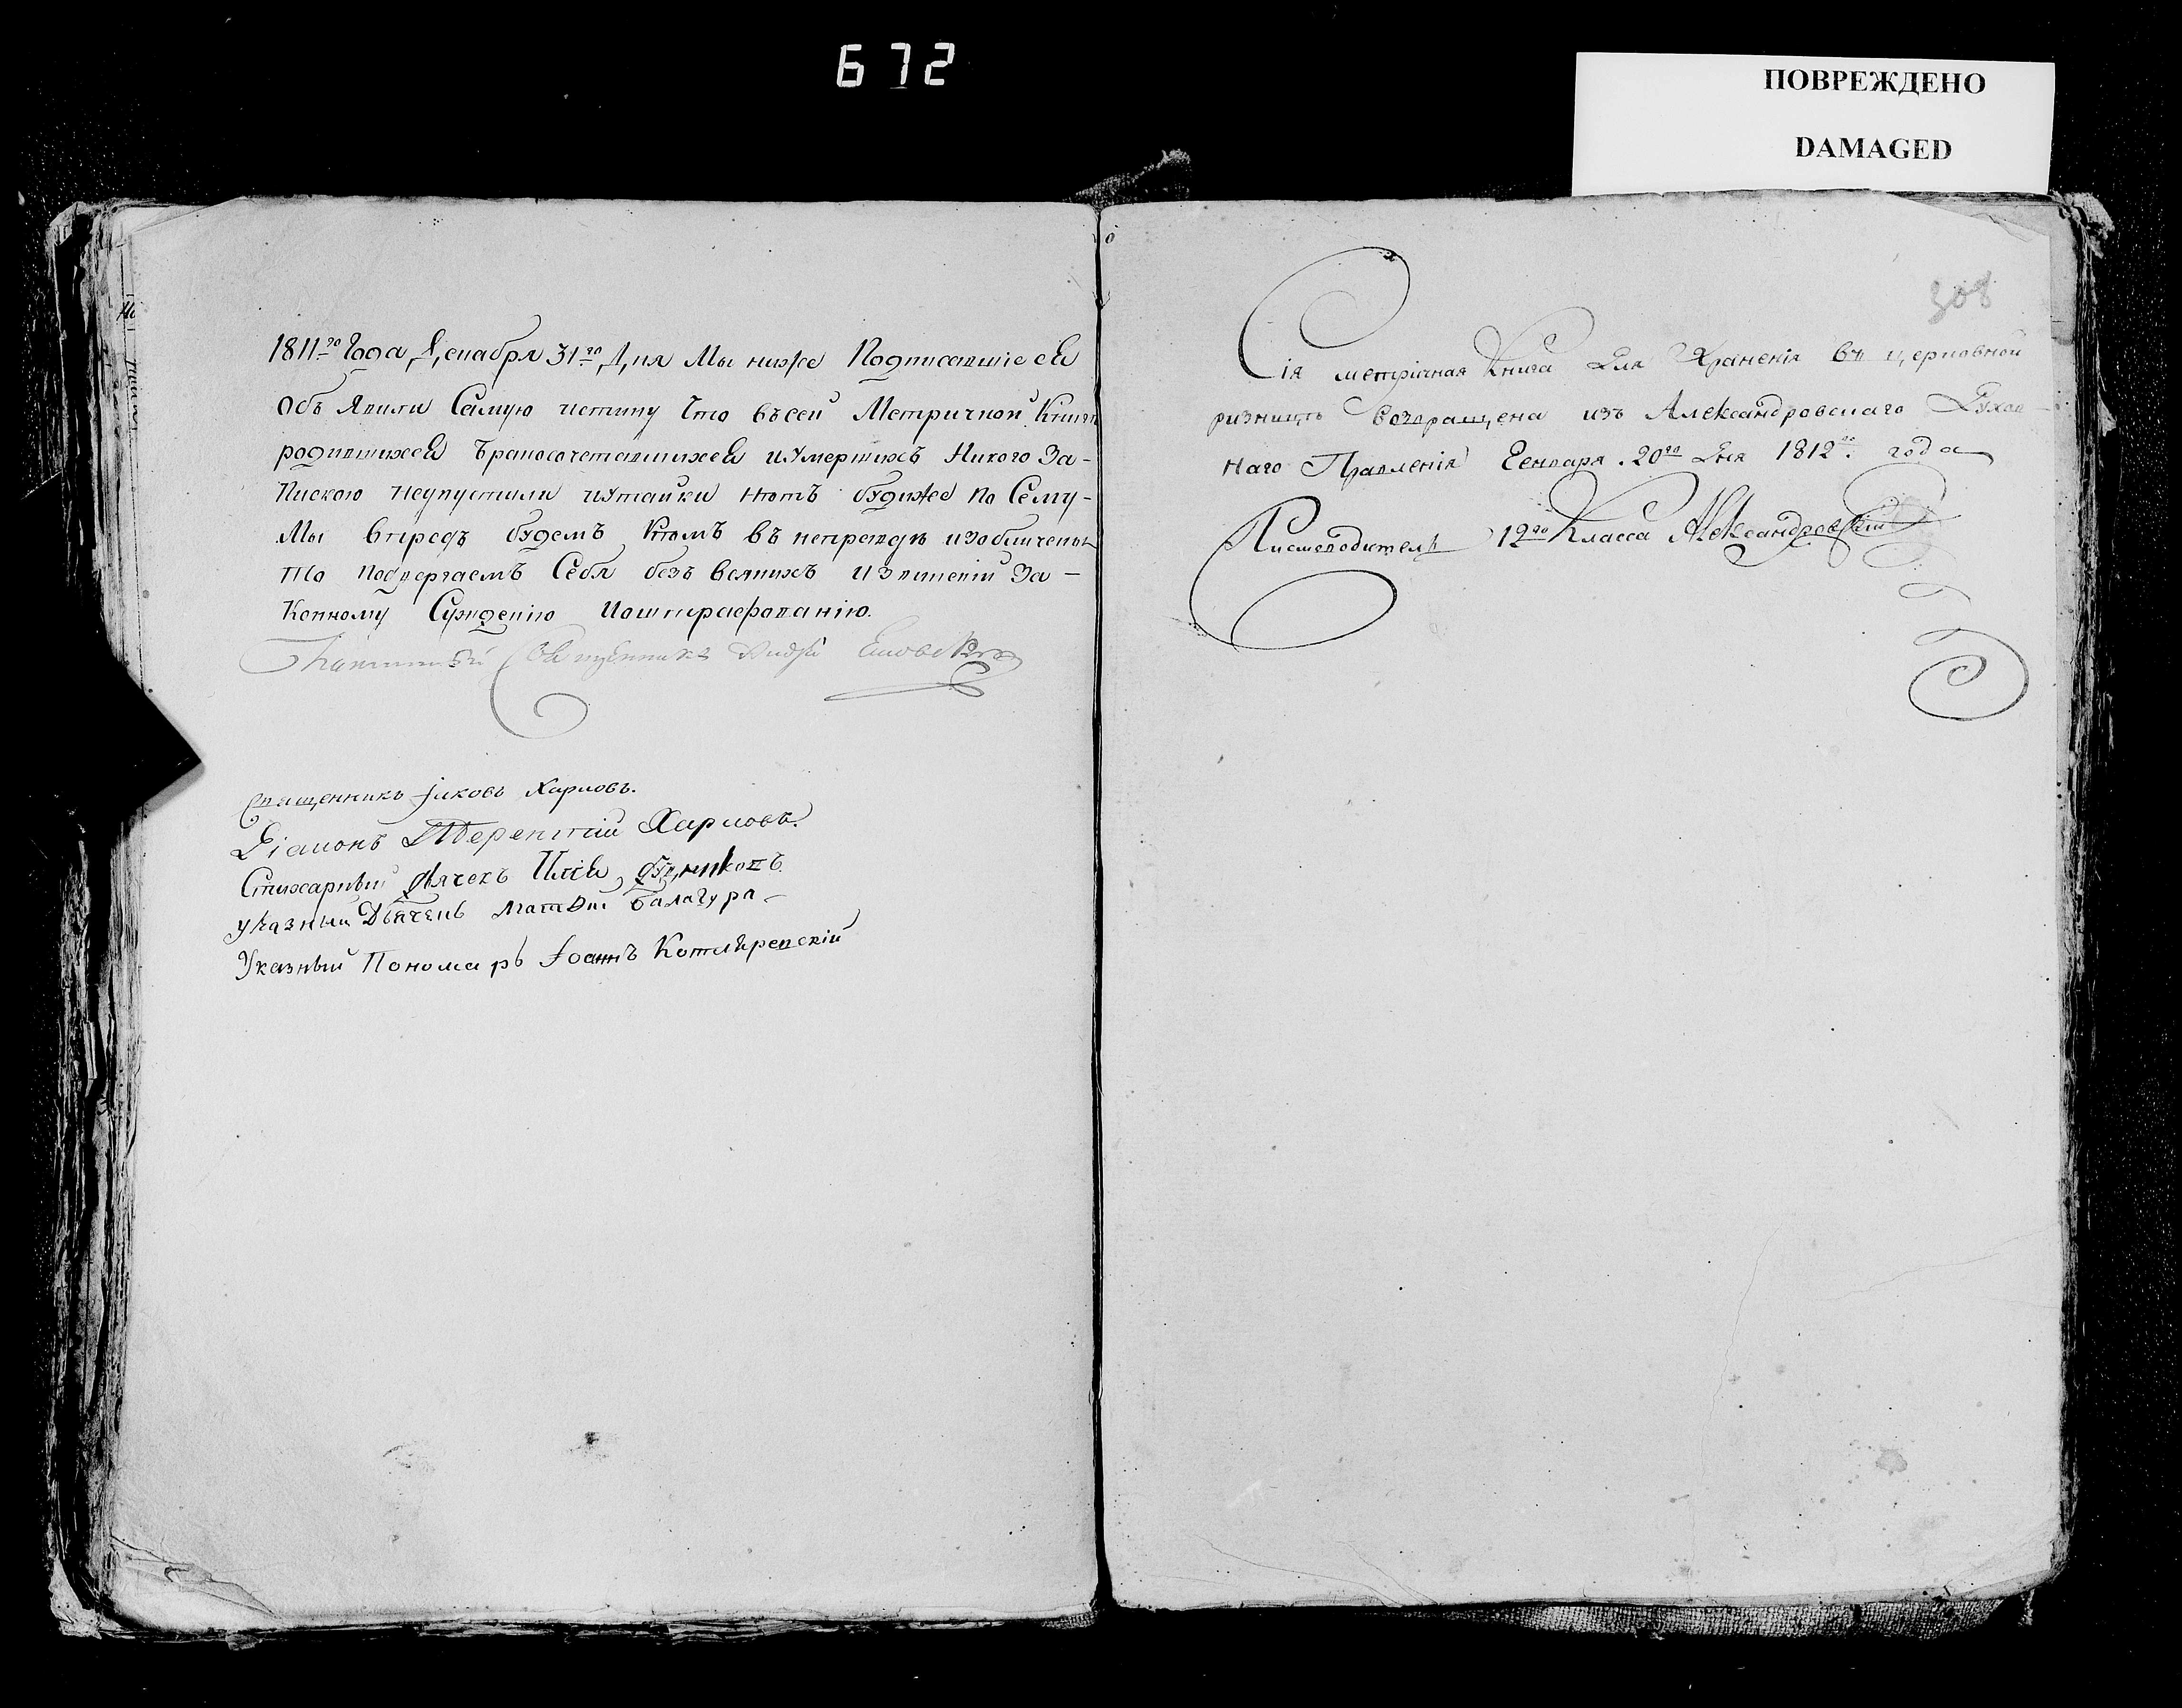 672
ПОВРЕЖДЕНО
DAMAGED
1811го Года Декабря 31го Дня Мы ниже Подписавшіеся
Объявили Самую истину Что всей Метричной Книги
родившихся Бракосочетавшихся иУмершихъ Никого За-
Пискою неупустили иУтайки нетъ будиже по Сему-
Мы впредъ будемъ Втомъ въ неправдѣ изобличены
То подвергаемъ Себя безъ всякихъ Извиненій За-
Конному Сужденію ИоштраФованію.
Священникъ
Священникъ Іаковъ Харловъ.
Діаконъ Харловъ.
Стихарный Дячекъ Илія
указный Дьячекъ Матѳій Балагура
Указный Пономарь Іоаннъ Котляревскій
308
Сія метричная Книга Для Храненія въ церковной
ризницѣ Возвращена изъ Александровскаго Духов-
наго Правленія Генваря. 20го Дня 1812го. года
Писмоводитель 12го Класса Александровскій